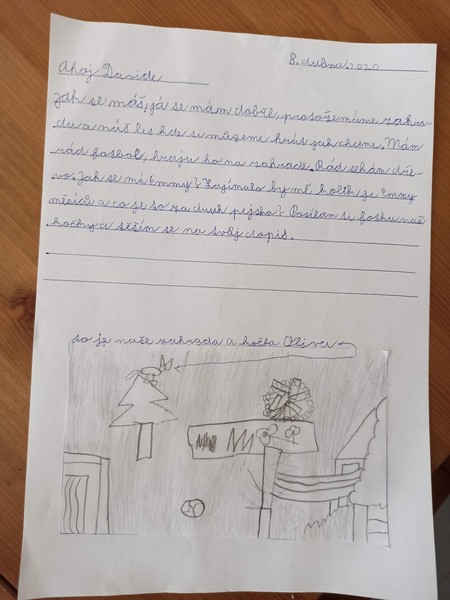 8. dubna 2020
Ahoj Davide
Jak se máš, já se mám dobře, protože máme zahra-
du a náš les kde si můžeme hrát jak chceme. Mám
rád fotbol, hraju ho na zahradě. Rád sekám dře-
vo. Jak se má Emmy? Zajímalo by mě kolik je Emmy
měsíců a co je to za druh pejska? Posílám ti fotku naš
kočky a těším se na tvůj dopis.
to je naše zahrada a kočka Oliva